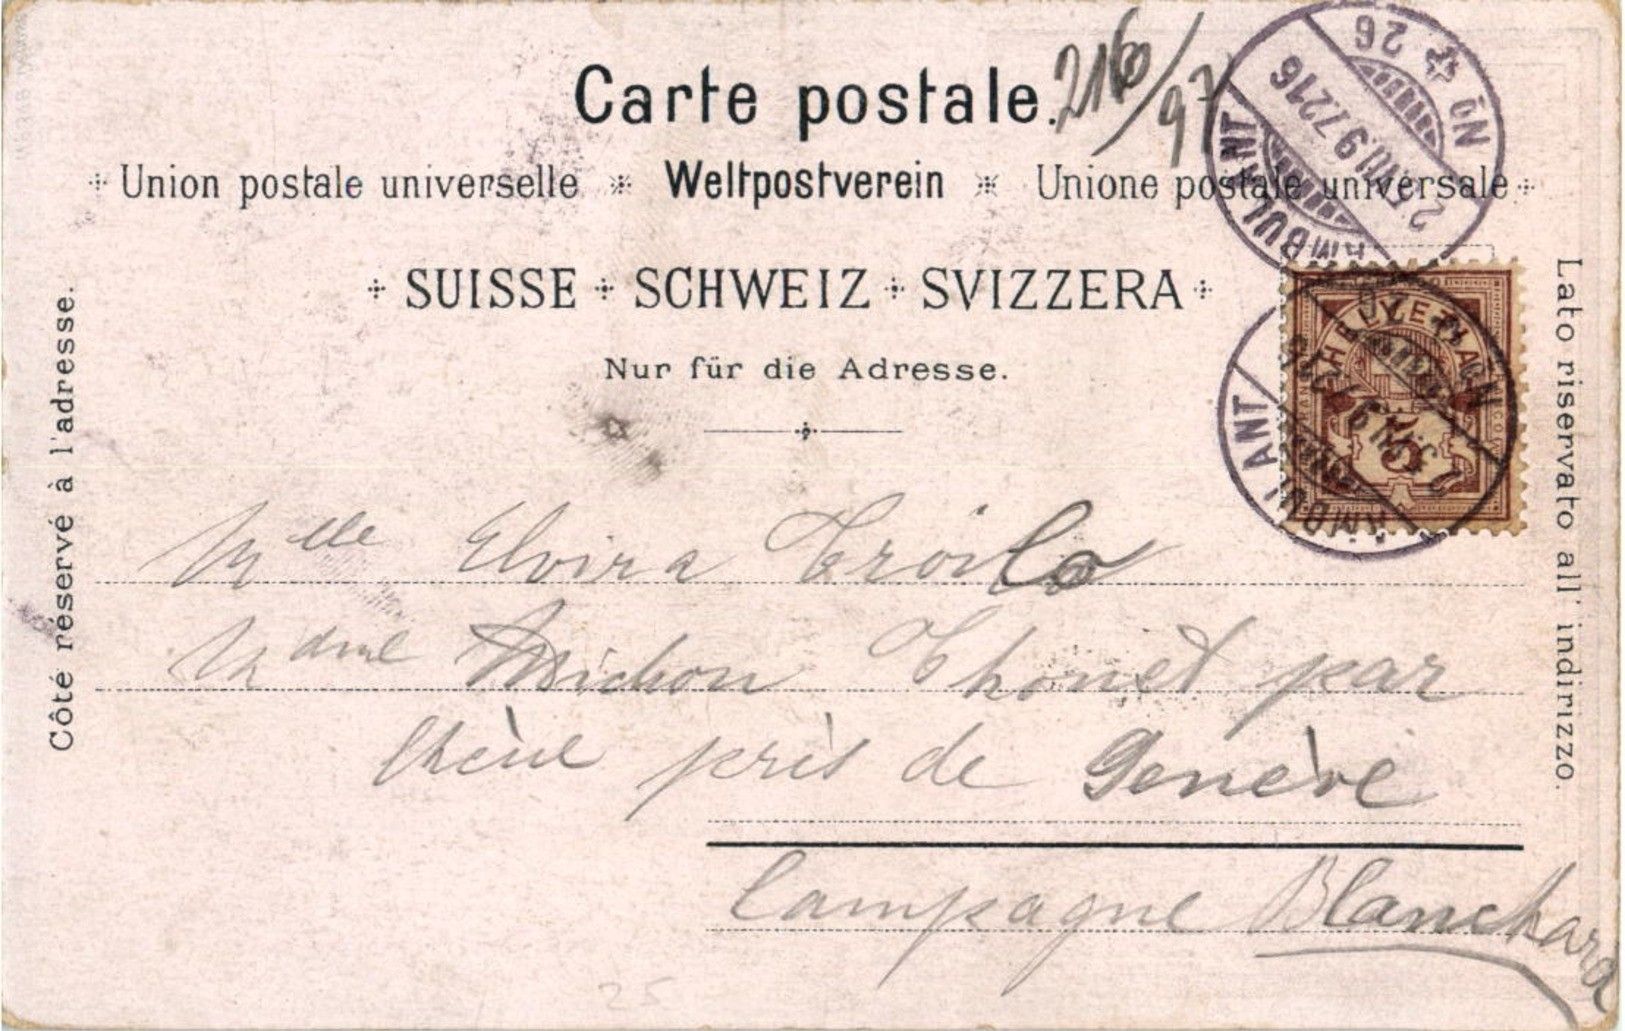 Carte postale.
2160/97
Union postale universelle Weltpostverein Unione postale universale
SUISSE SCHWEIZ SVIZZERA
Nur für die Adresse.
Côté réservé à l'adresse.
Lato riservato all' indirizzo.
AMBULANT No 26
HELVETIA
5
AMBULANT
Mlle Elvira Troilo
Mdme Michon Thonet par
Chène près de Genève
Campagne Blanchard
25